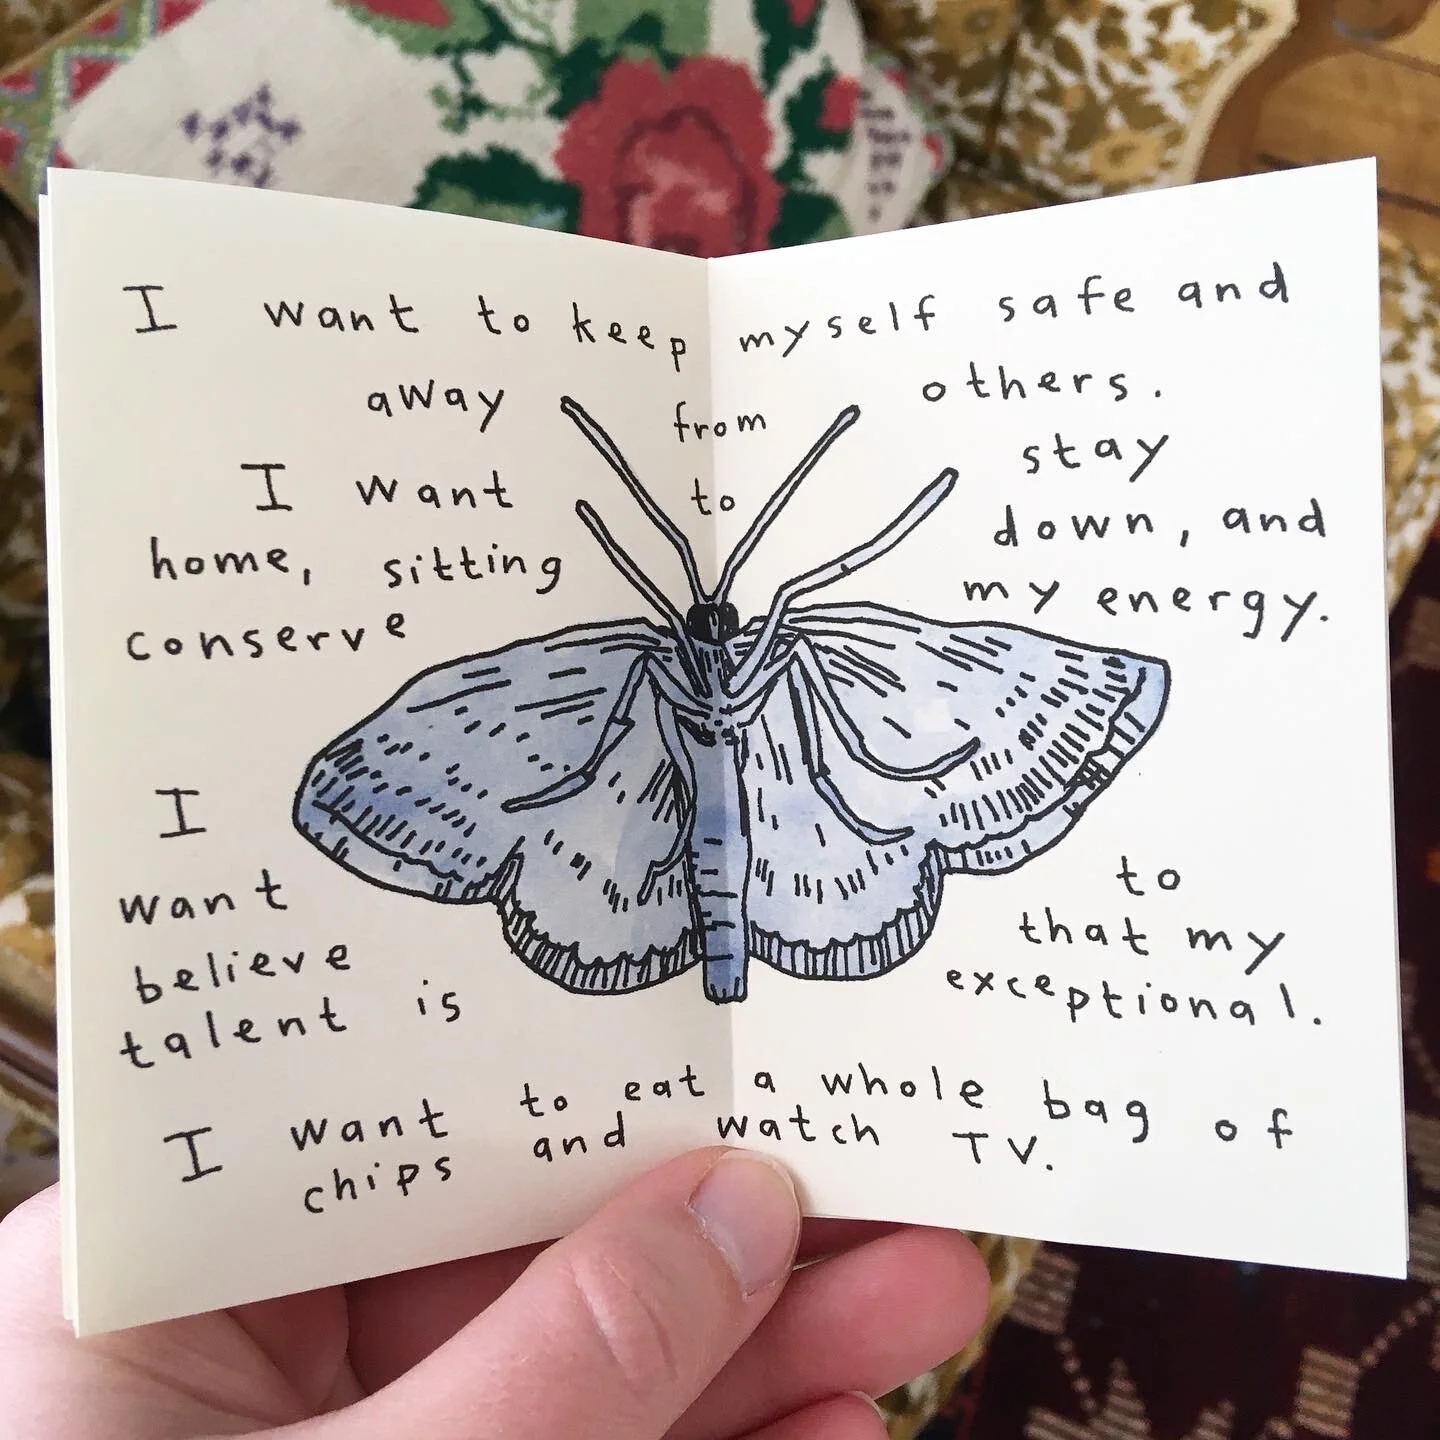 I want to keep myself safe and
away from others.
I want to stay
home, sitting down, and
conserve my energy.
I to
want that my
believe exceptional.
talent is
I want to eat a whole bag of
chips and watch TV.